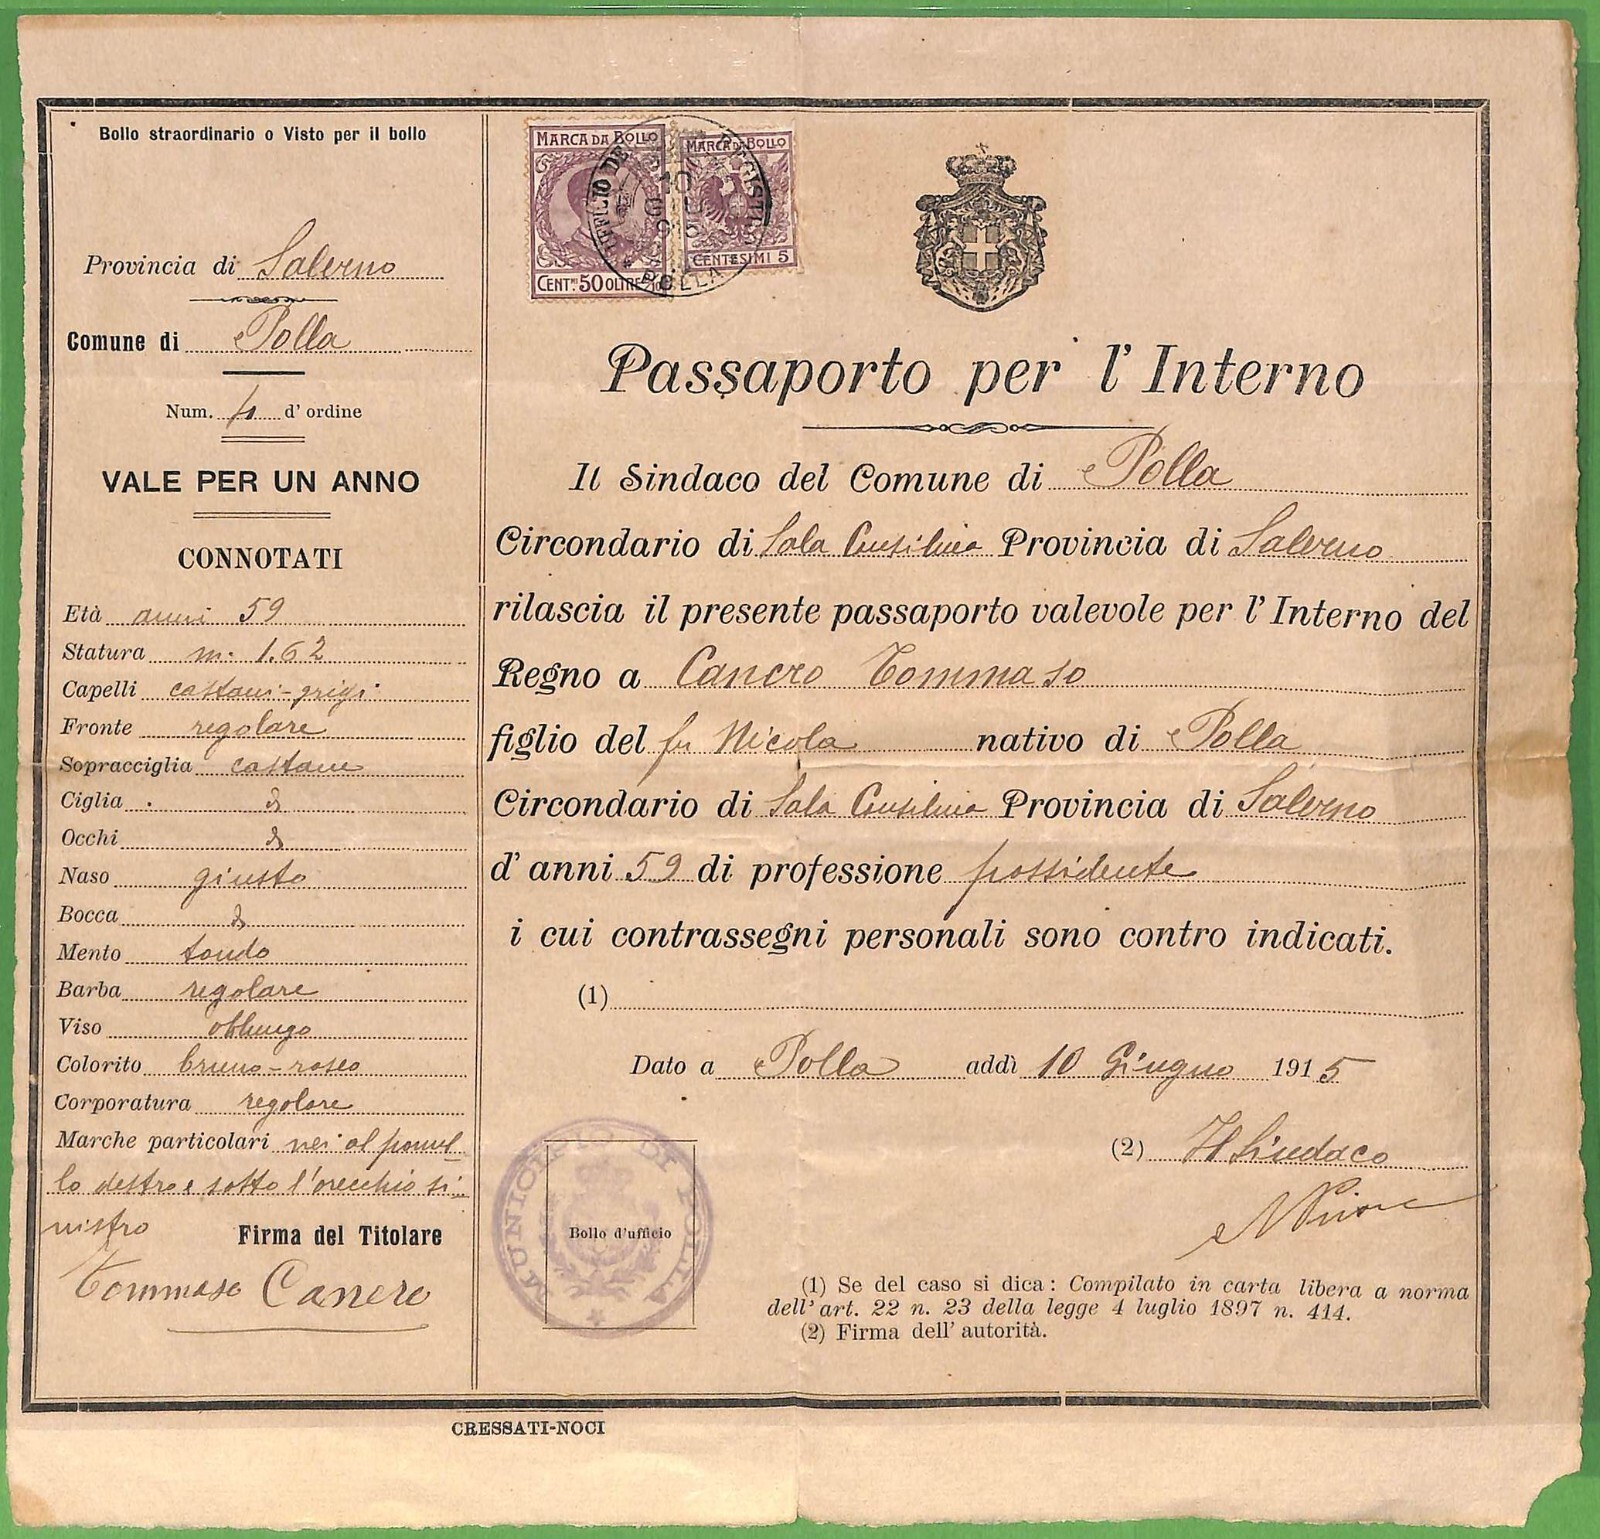 Bollo straordinario o Visto per il bollo
Provincia di Salerno
Comune di Polla
Num. 4 d' ordine
VALE PER UN ANNO
CONNOTATI
Età anni 59
Statura m. 1.62
Capelli castani-grigi
Fronte regolare
Sopracciglia castane
Ciglia
Occhi
Naso giusto
Bocca
Mento tondo
Barba regolare
Viso oblungo
Colorito bruno-roseo
Corporatura regolare
Marche particolari nei al pomel-
lo destro e sotto l'orecchio si-
nistro
Firma del Titolare
Tommaso Canero
MARCA DA BOLLO
CENT.MI 50 OLTRE
MARCA DA BOLLO
CENTESIMI 5
UFFICIO DEL REGISTRO
10
POLLA
Passaporto per l' Interno
Il Sindaco del Comune di Polla
Circondario di Sala Consilina Provincia di Salerno
rilascia il presente passaporto valevole per l' Interno del
Regno a Canero Tommaso
figlio del fu Nicola nativo di Polla
Circondario di Sala Consilina Provincia di Salerno
d' anni 59 di professione possidente
i cui contrassegni personali sono contro indicati.
(1)
Dato a Polla addì 10 Giugno 1915
(2) Il Sindaco
MUNICIPIO DI POLLA
Bollo d'ufficio
(1) Se del caso si dica: Compilato in carta libera a norma
dell' art. 22 n. 23 della legge 4 luglio 1897 n. 414.
(2) Firma dell' autorità.
CRESSATI-NOCI